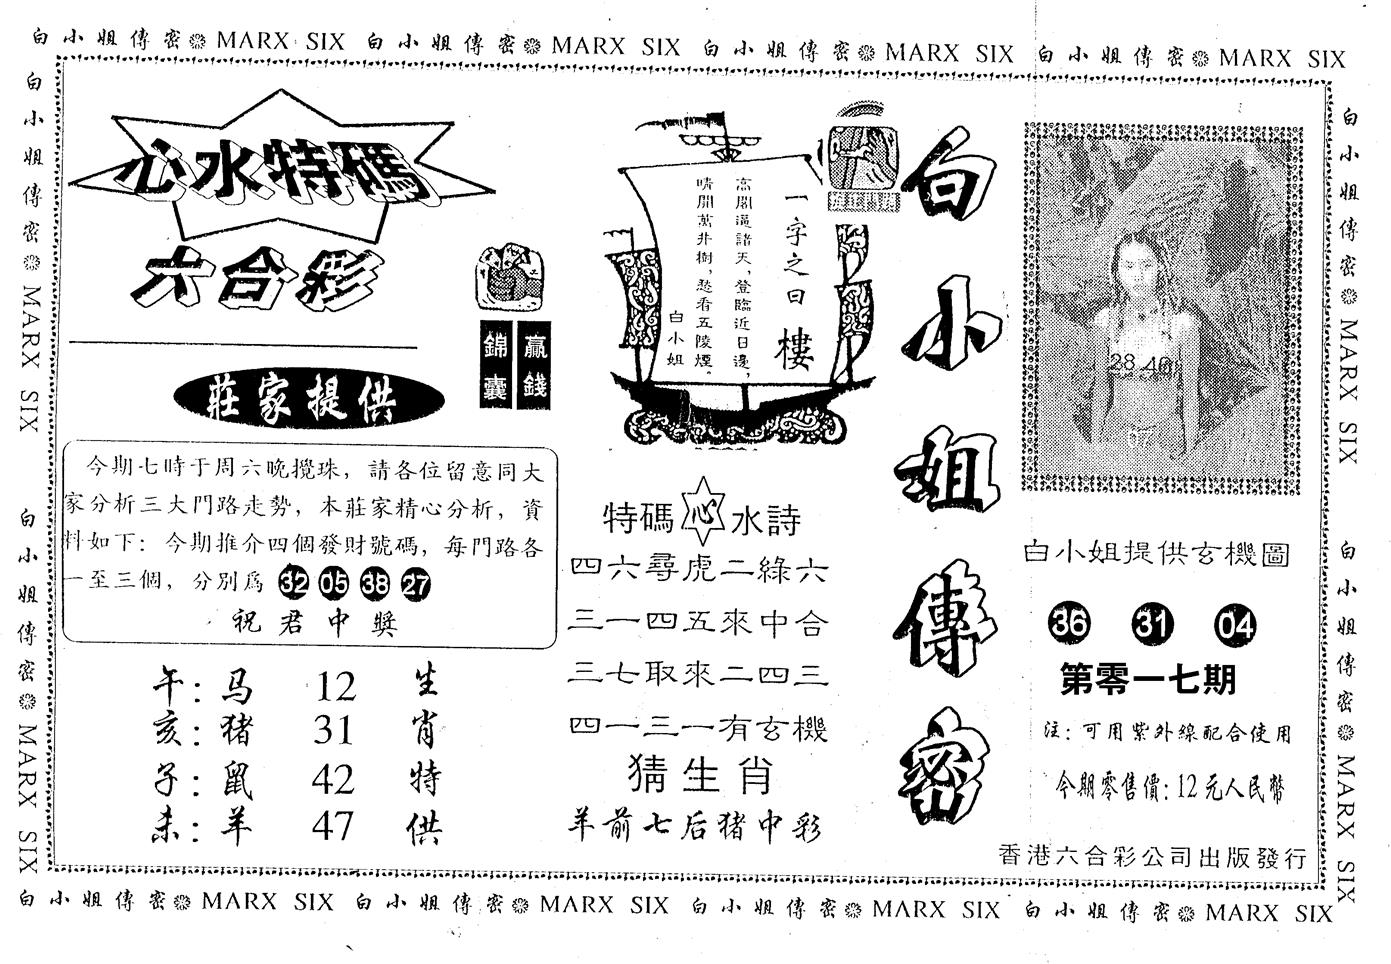 白小姐傳密 MARX SIX 白小姐傳密 MARX SIX 白小姐傳密 MARX SIX 白小姐傳密 MARX SIX
白小姐傳密 MARX SIX 白小姐傳密 MARX SIX
心水特碼
六合彩
錦囊
贏錢
莊家提供
今期七時于周六晚攪珠，請各位留意同大
家分析三大門路走勢，本莊家精心分析，資
料如下：今期推介四個發財號碼，每門路各
一至三個，分別爲 32 05 38 27
祝君中獎
午：马 12 生
亥：猪 31 肖
子：鼠 42 特
未：羊 47 供
一字之曰 樓
高閣逼諸天，登臨近日邊，
晴開萬井樹，愁看五陵煙。
白小姐
特碼心水詩
四六尋虎二綠六
三一四五來中合
三七取來二四三
四一三一有玄機
猜生肖
羊前七后猪中彩
白小姐傳密
28 40
07
白小姐提供玄機圖
36 31 04
第零一七期
注：可用紫外線配合使用
今期零售價：12元人民幣
香港六合彩公司出版發行
白小姐傳密 MARX SIX 白小姐傳密 MARX SIX
白小姐傳密 MARX SIX 白小姐傳密 MARX SIX 白小姐傳密 MARX SIX 白小姐傳密 MARX SIX